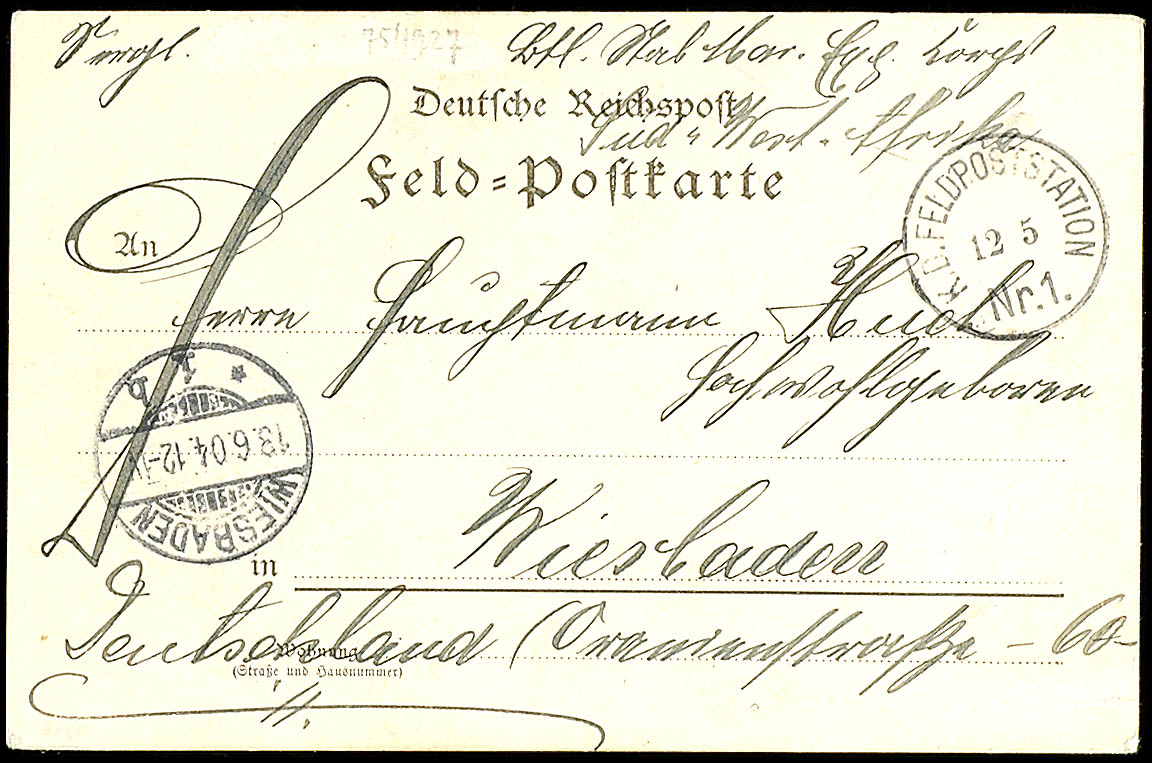 75/1927
Btl. Stab Mar. Exp. Korps
Deutsche Reichspost
Süd-West-Afrika
Feld-Postkarte
K.D. FELDPOSTSTATION
12 5
Nr. 1.
An
Herrn Hauptmann
Hochwohlgeboren
WIESBADEN
13.6.04. 12-
in Wiesbaden
Deutschland (Oranienstraße - 60-
Wohnung
(Straße und Hausnummer)